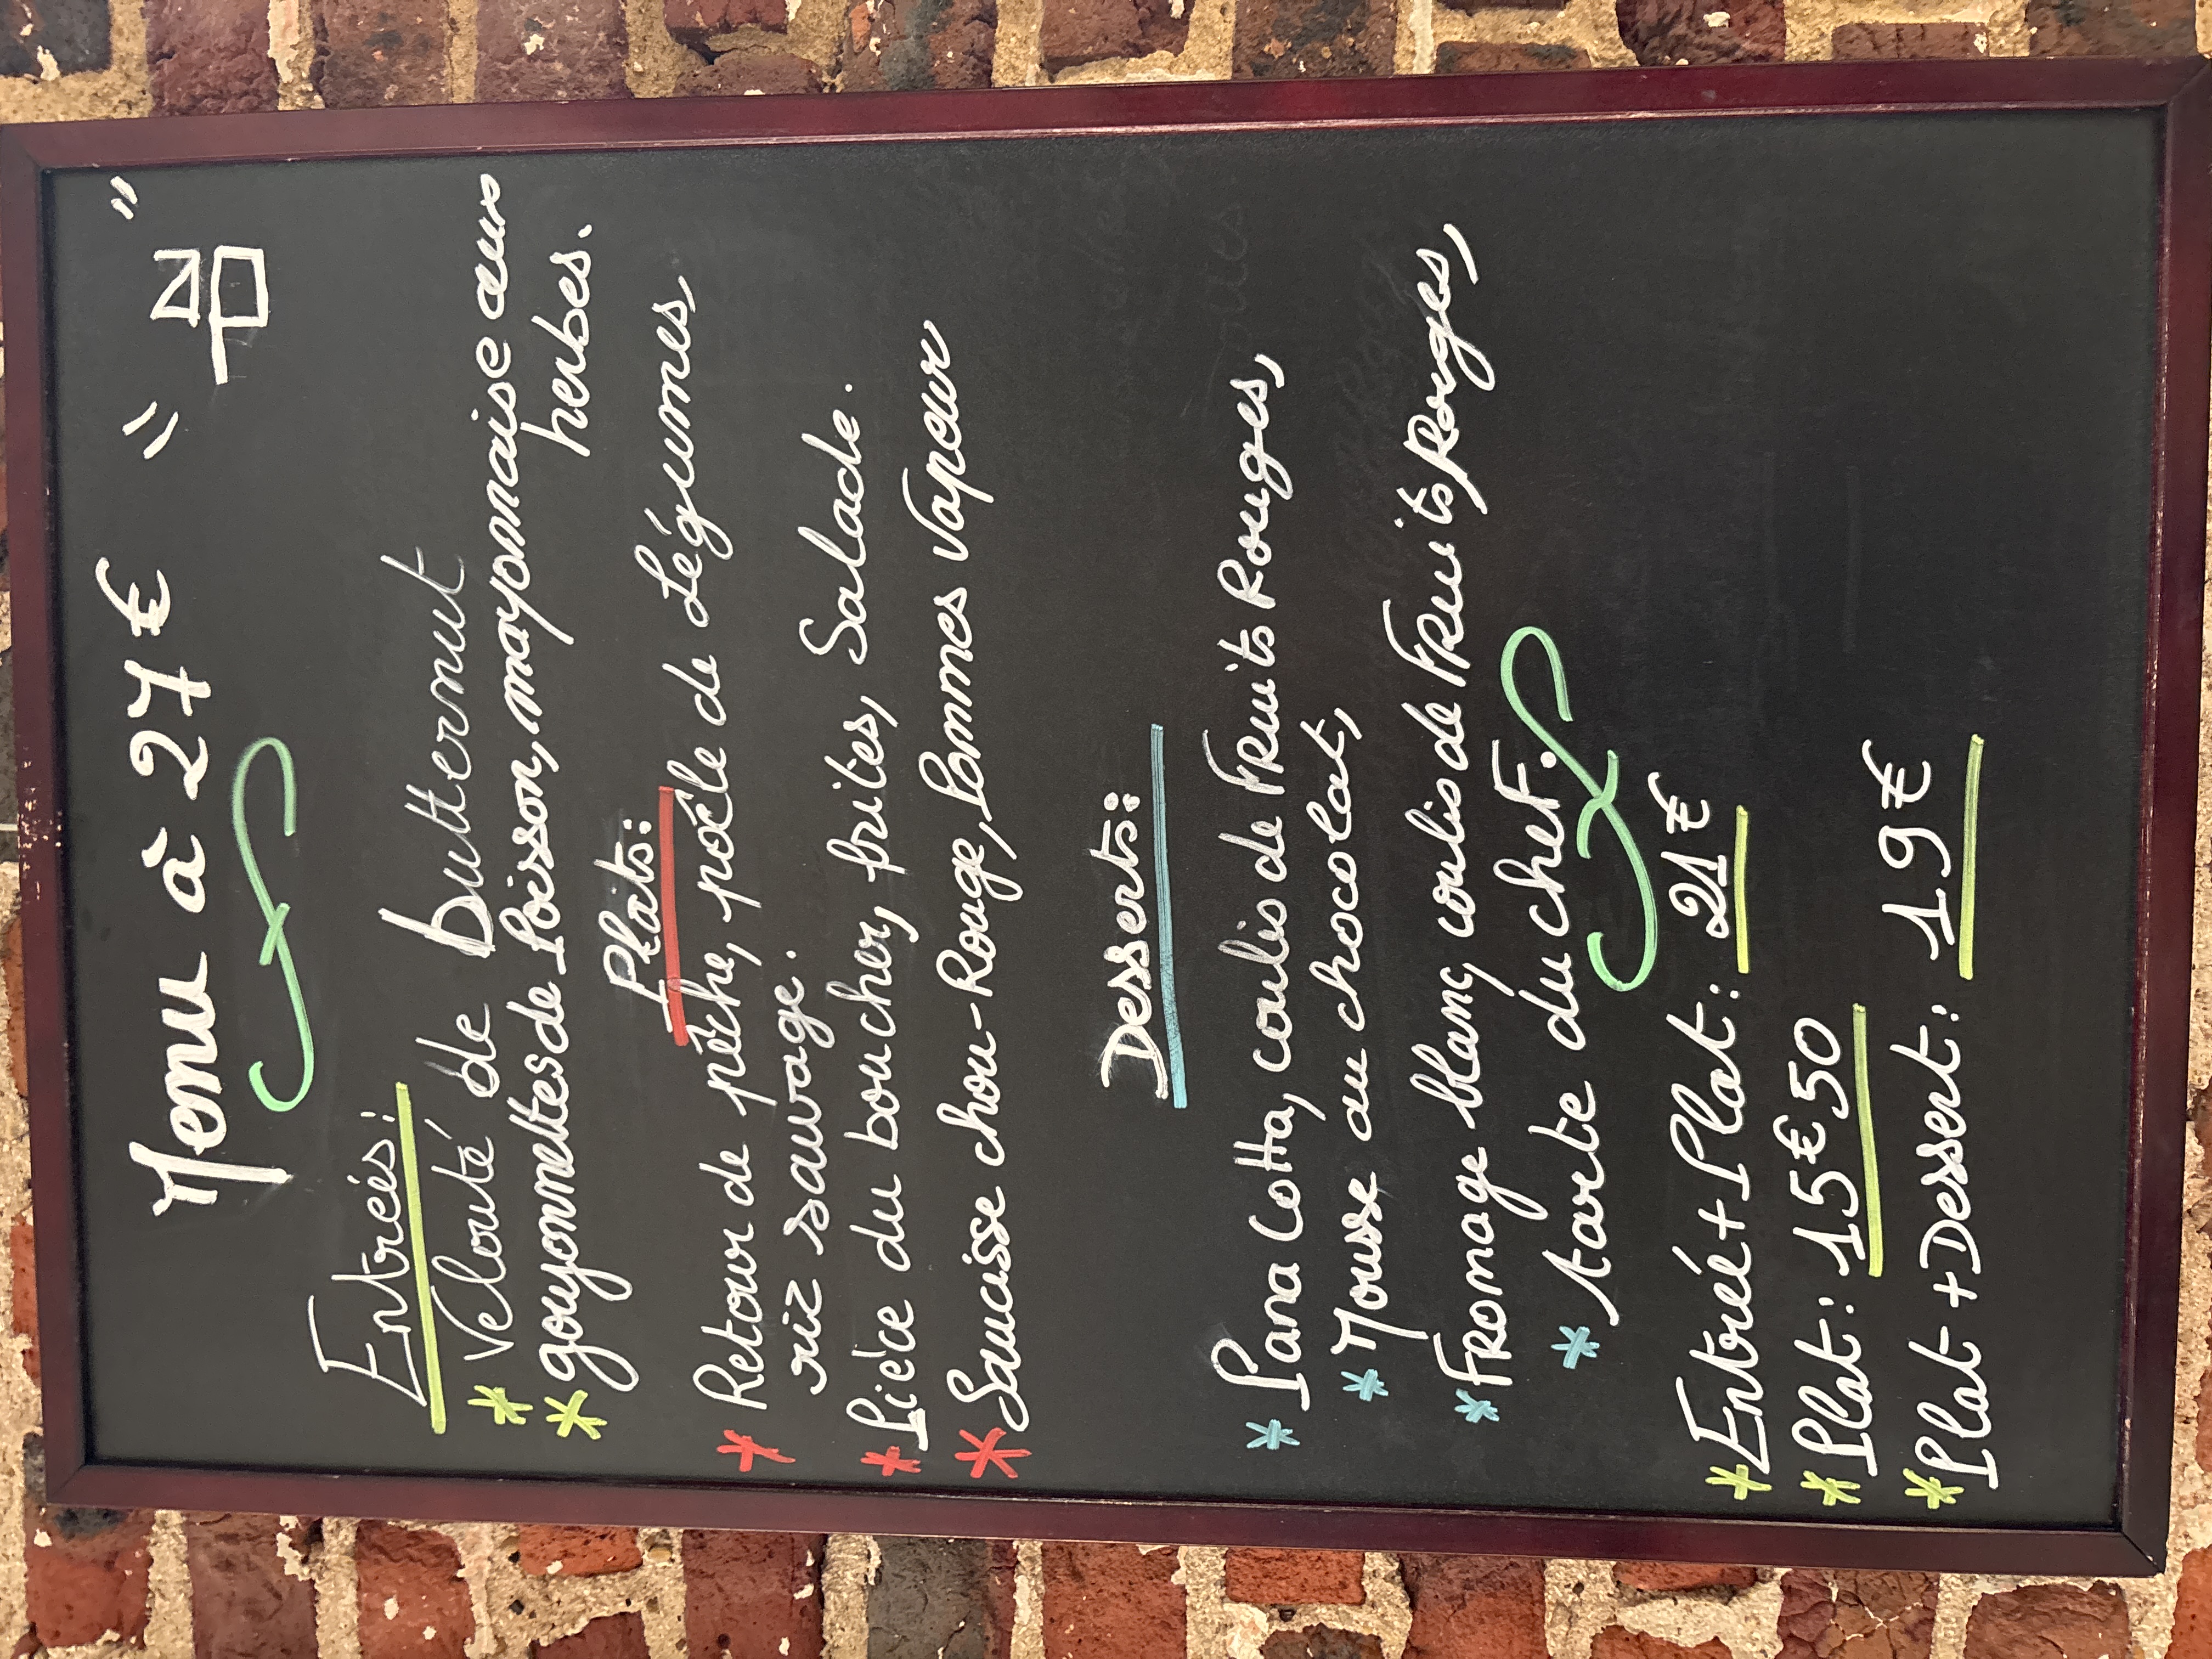 Menu à 27€
Entrées:
* Velouté de butternut
* gouyonnettes de Poisson, mayonnaise aux
herbes.
Plats:
* Retour de pêche, poêle de Légumes,
riz sauvage.
* Pièce du boucher, frites, Salade.
* Saucisse chou-Rouge, Pommes Vapeur
Desserts:
* Pana Cotta, coulis de Fruits Rouges,
* Mousse au chocolat,
* Fromage blanc, coulis de Fruits Rouges,
* tarte du chef.
* Entrée + Plat: 21€
* Plat: 15€50
* Plat + Dessert: 19€